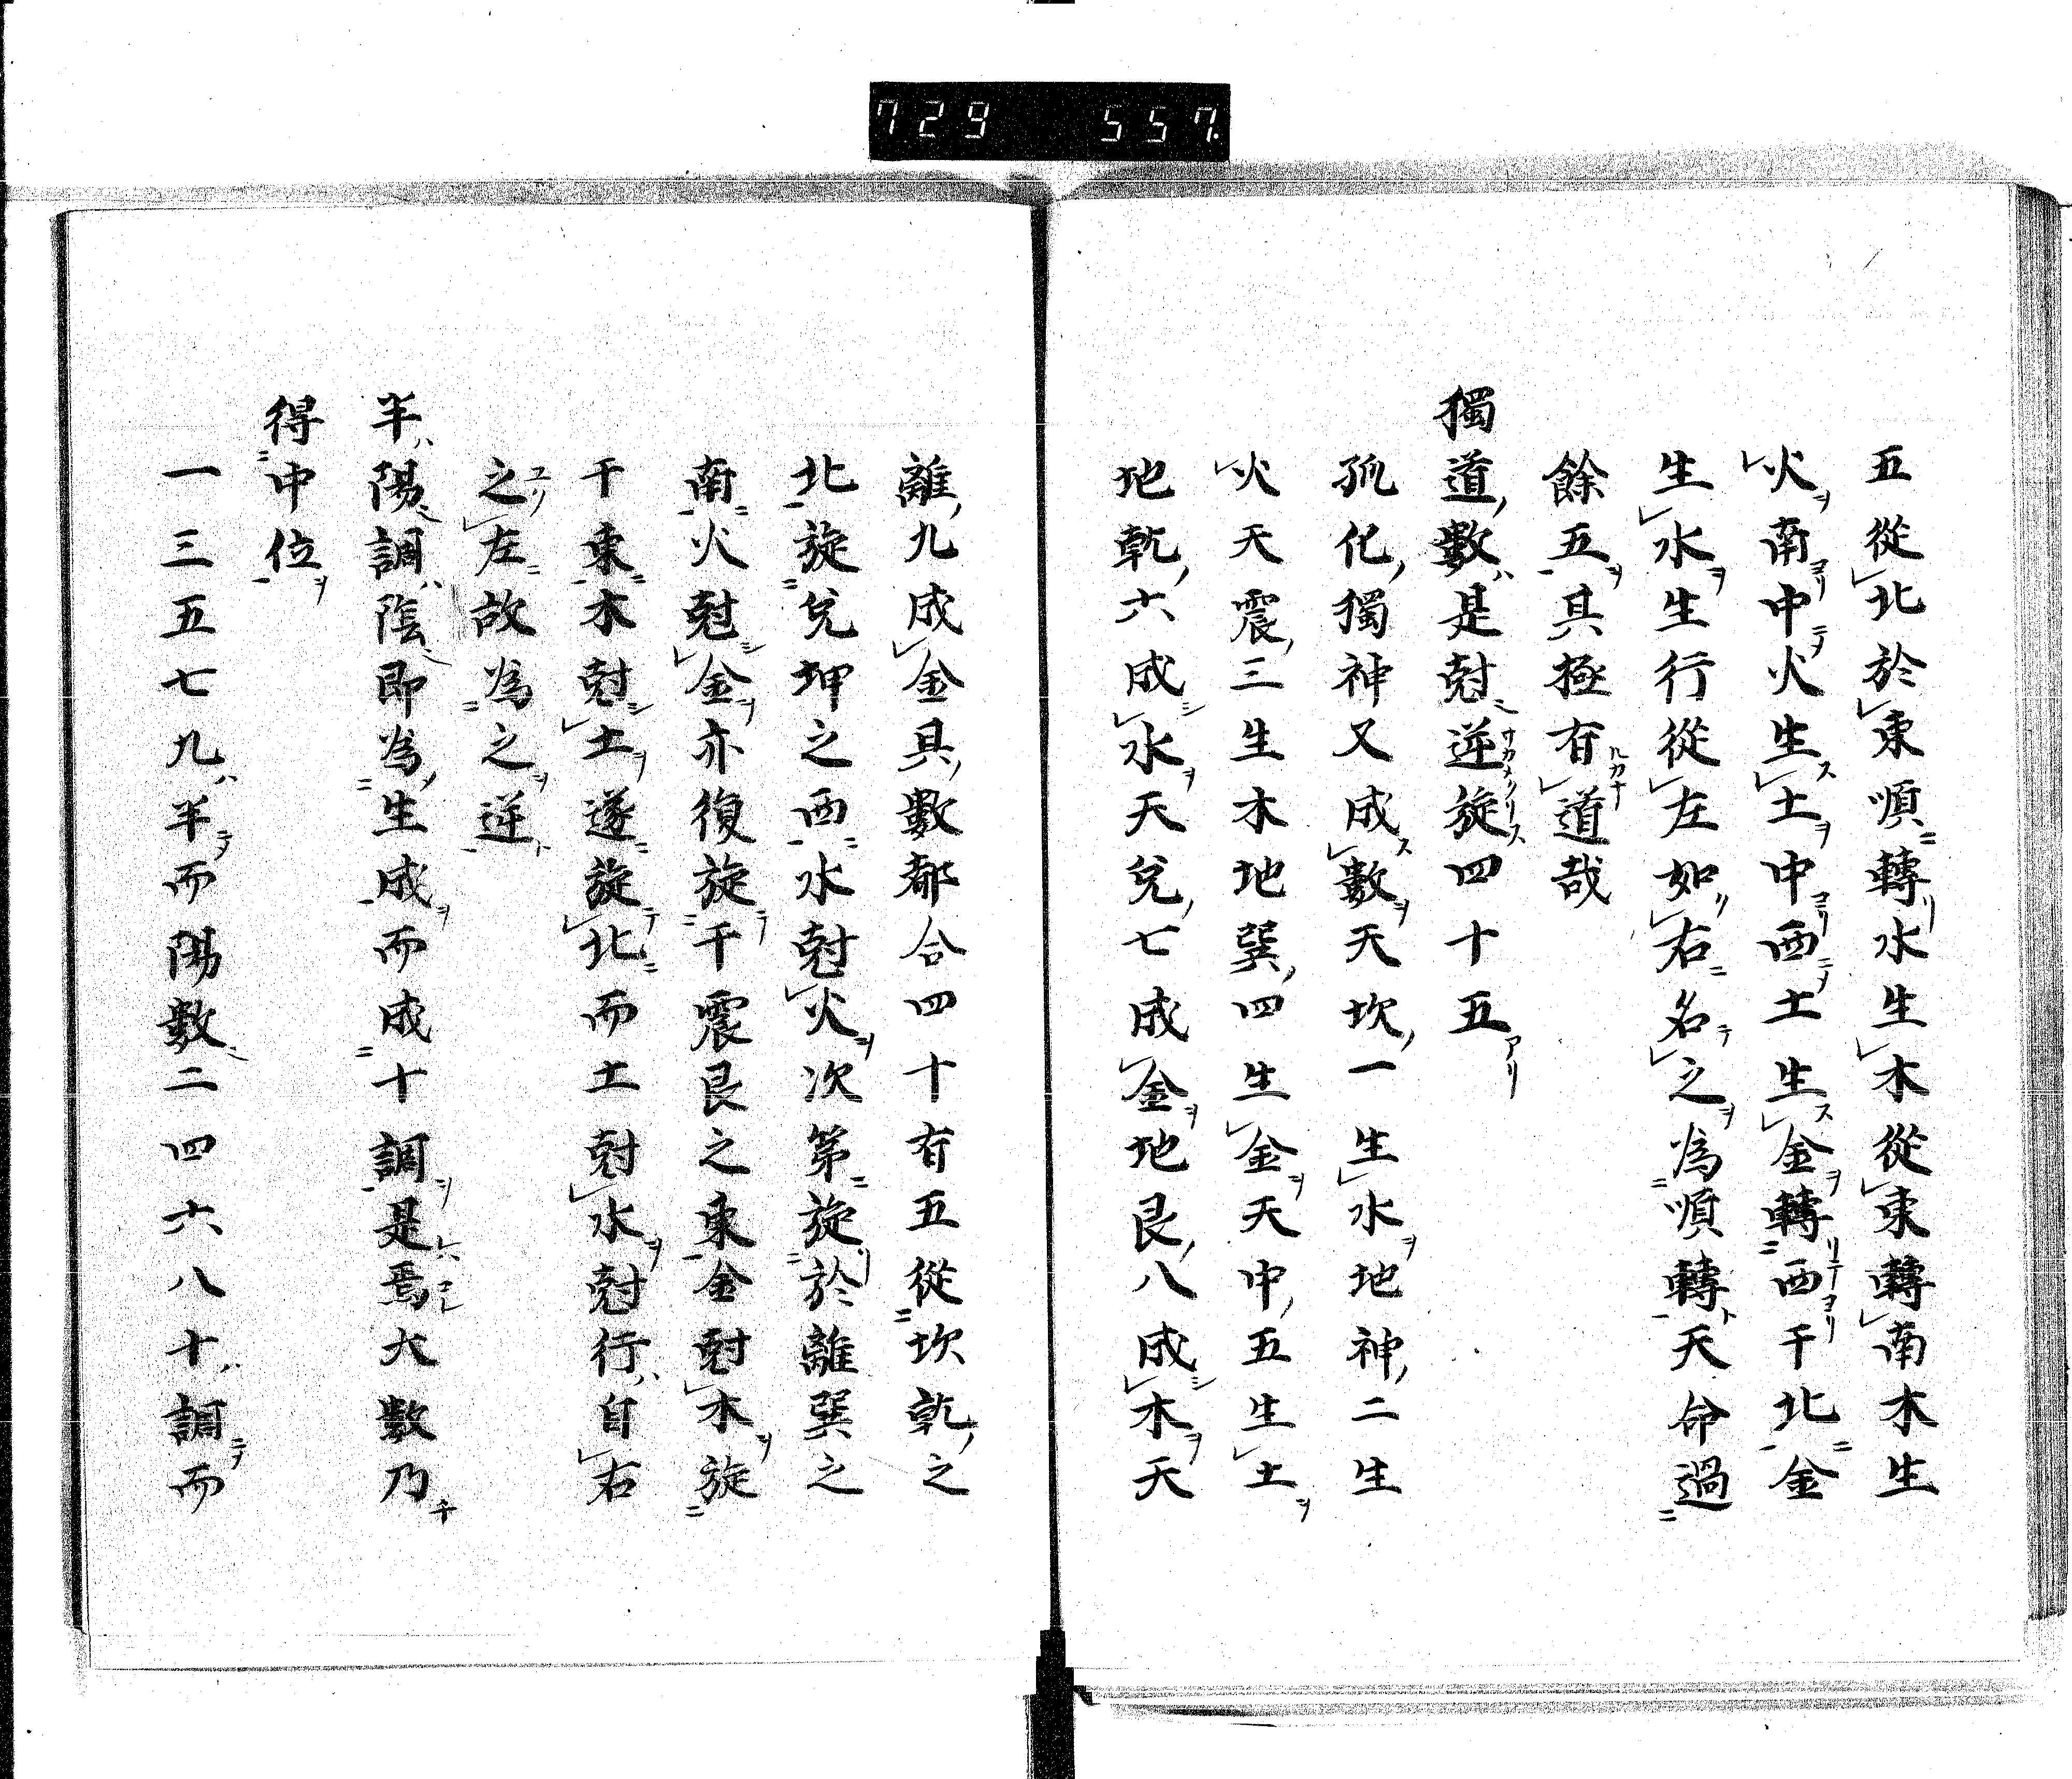 729 557.
五從北於東順轉水生木從東轉南木生
火南中火生土中西土生金轉西于北金
生水生行從左如右名之為順轉天命過
餘五其極有道哉
獨道數是尅逆旋四十五
孤化獨神又成數天坎一生水地神二生
火天震三生木地巽四生金天中五生土
地乾六成水天兌七成金地艮八成木天
離九成金具數都合四十有五從坎乾之
北旋兌坤之西水尅火次第旋於離巽之
南火尅金亦復旋于震艮之東金尅木旋
于東木尅土遂旋北而土尅水尅行自右
之左故為之逆
半陽調陰即為生成而成十調是焉大數乃
得中位
一三五七九半而陽數二四六八十調而